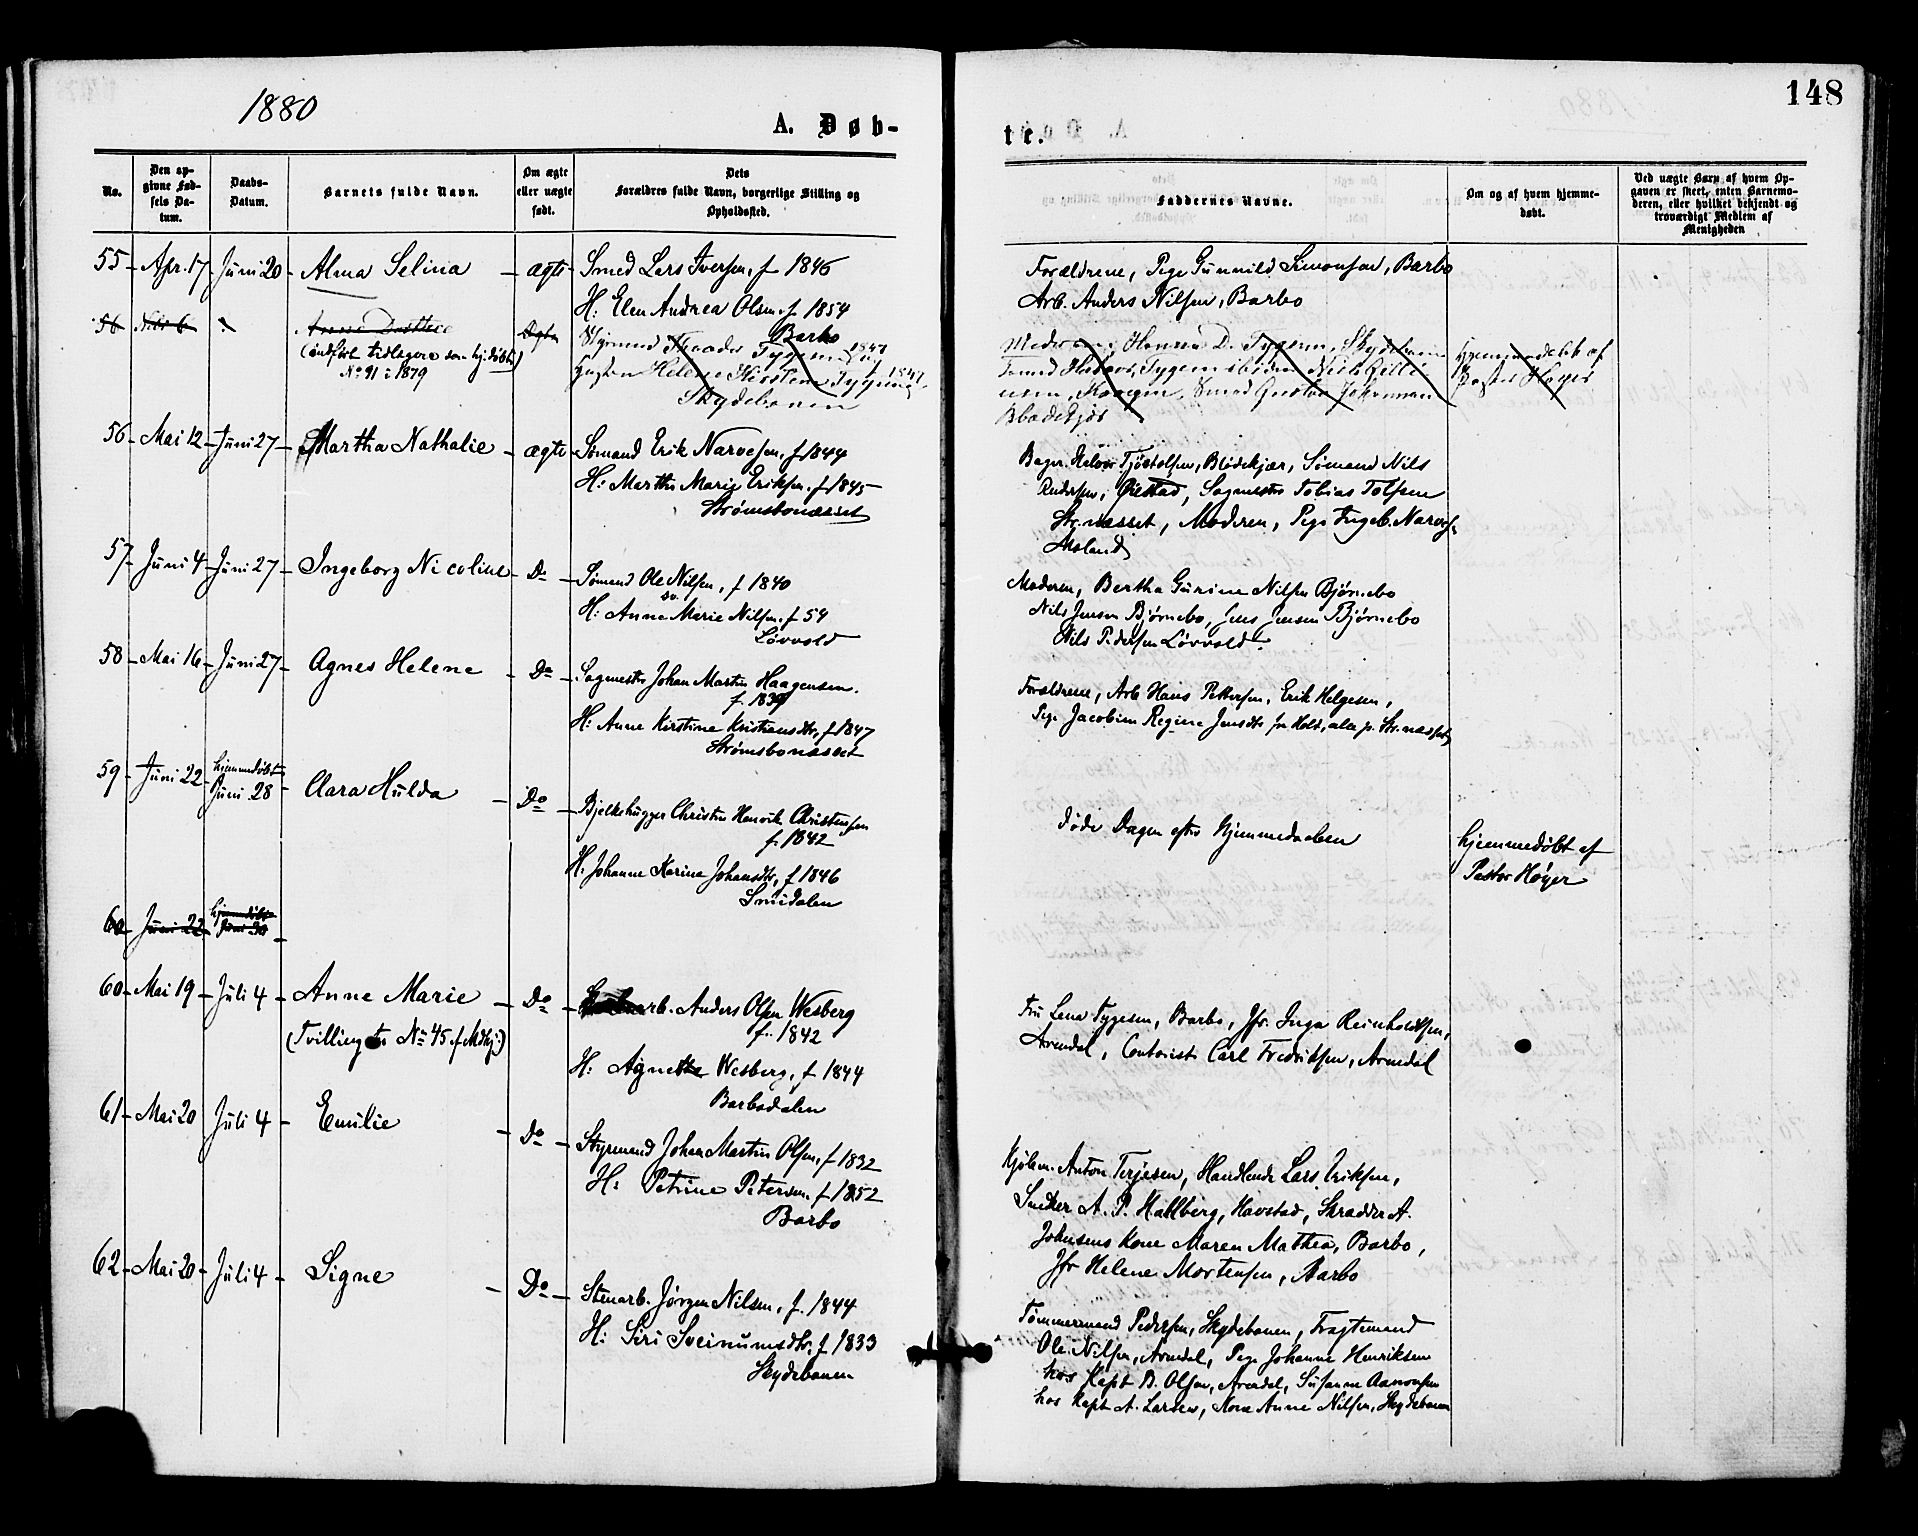 1880
148
A. Døb-
te.
No.
Den op-
givne Fød-
sels Da-
tum.
Daabs-
Datum.
Barnets fulde Navn.
Om ægte
eller uægte
født.
Dets
Forældres fulde Navn, borgerlige Stilling og
Opholdssted.
Faddernes Navne.
Om og af hvem hjemme-
døbt.
Ved uægte Barn af hvem Op-
gaven er skeet, enten Barnemo-
deren, eller hvilket bekjendt og
troværdigt Medlem af
Menigheden
55 Apr. 17 Juni 20 Alma Selina ægte Smed Lars Iversen, f 1846
H: Elen Andrea Olsen f. 1854
Barbo
Forældrene, Pige Gunnild Simonsen, Barbo
Arb. Anders Nilsen, Barbo
56
(indført tidligere som hj.døbt)
No 91 i 1879
Ægte
Tygesen f. 1847
Helene Tygesen f. 1847
Skydebanen
Tygesen, Skydebanen
Hjemmedøbt af
Pastor Høyer
56 Mai 12 Juni 27 Martha Nathalie ægte Sømand Erik Narvesen, f 1844
H: Marthe Marie Eriksen. f 1845
Strømsbonæsset
Bager Halvor Tjøstolfsen, Blødekjær, Sømand Nils
Pedersen, Øiestad, Sagmester Tobias Tolfsen
Str.næsset, Moderen, Pige Ingeb. Narvesen
Asland
57 Juni 4 Juni 27 Ingeborg Nicoline Do Sømand Ole Nilsen, f 1840
H: Anne Marie Nilsen. f 54
Løvvold
Moderen, Bertha Gurine Nilsen Bjørnebo
Nils Jensen Bjørnebo, Jens Jensen Bjørnebo
Nils Pedersen Løvvold.
58 Mai 16 Juni 27 Agnes Helene Do Sagmester Johan Martin Haagensen.
f. 1839
H: Anne Kirstine Kristensdtr, f 1847
Strømsbonæsset
Forældrene, Arb Hans Pettersen, Erik Helgesen,
Pige Jacobine Regine Jensdtr fra Holt, alle p. Str.næsset
59 Juni 22 hjemmedøbt
Juni 28 Clara Hulda Do Bjelkehugger Christen Henrik Christensen
f. 1842
H: Johanne Karine Johansdtr, f 1846
Smidalen
døde Dagen efter Hjemmedaaben
hjemmedøbt af
Pastor Høyer
60 Juni 22 hjemmedøbt
Juni 30
60 Mai 19 Juli 4 Anne Marie Do arb. Anders Olsen Wesberg
f. 1842
(Tvilling til No 45 f Mdkj:)
H: Agnethe Wesberg, f 1844
Barbodalen
Fru Lena Tygesen, Barbo, Jfr. Inga Reinholdtsen,
Arendal, Contorist Carl Fredriksen, Arendal
61 Mai 20 Juli 4 Emilie Do Styrmand Johan Martin Olsen, f 1832
H: Petrine Petersen. f 1852
Barbo
Kjøbm. Anton Terjesen, Handlende Lars Eriksen,
Snedker A. P. Hallberg, Havstad, Skrædder A.
Johnsens Kone Maren Mathea, Barbo,
Jfr Helene Mortensen, Barbo
62 Mai 20 Juli 4 Signe Do Stenarb. Jørgen Nilsen, f. 1844
H: Siri Sveinumsdtr. f 1833
Skydebanen
Tømmermand Pedersen, Skydebanen, Fragtemand
Ole Nilsen, Arendal, Pige Johanne Henriksen
hos Kapt B. Olsen, Arendal, Susanne Aanonsen
hos Kapt A. Larsen, Kone Anne Nilsen, Skydebanen